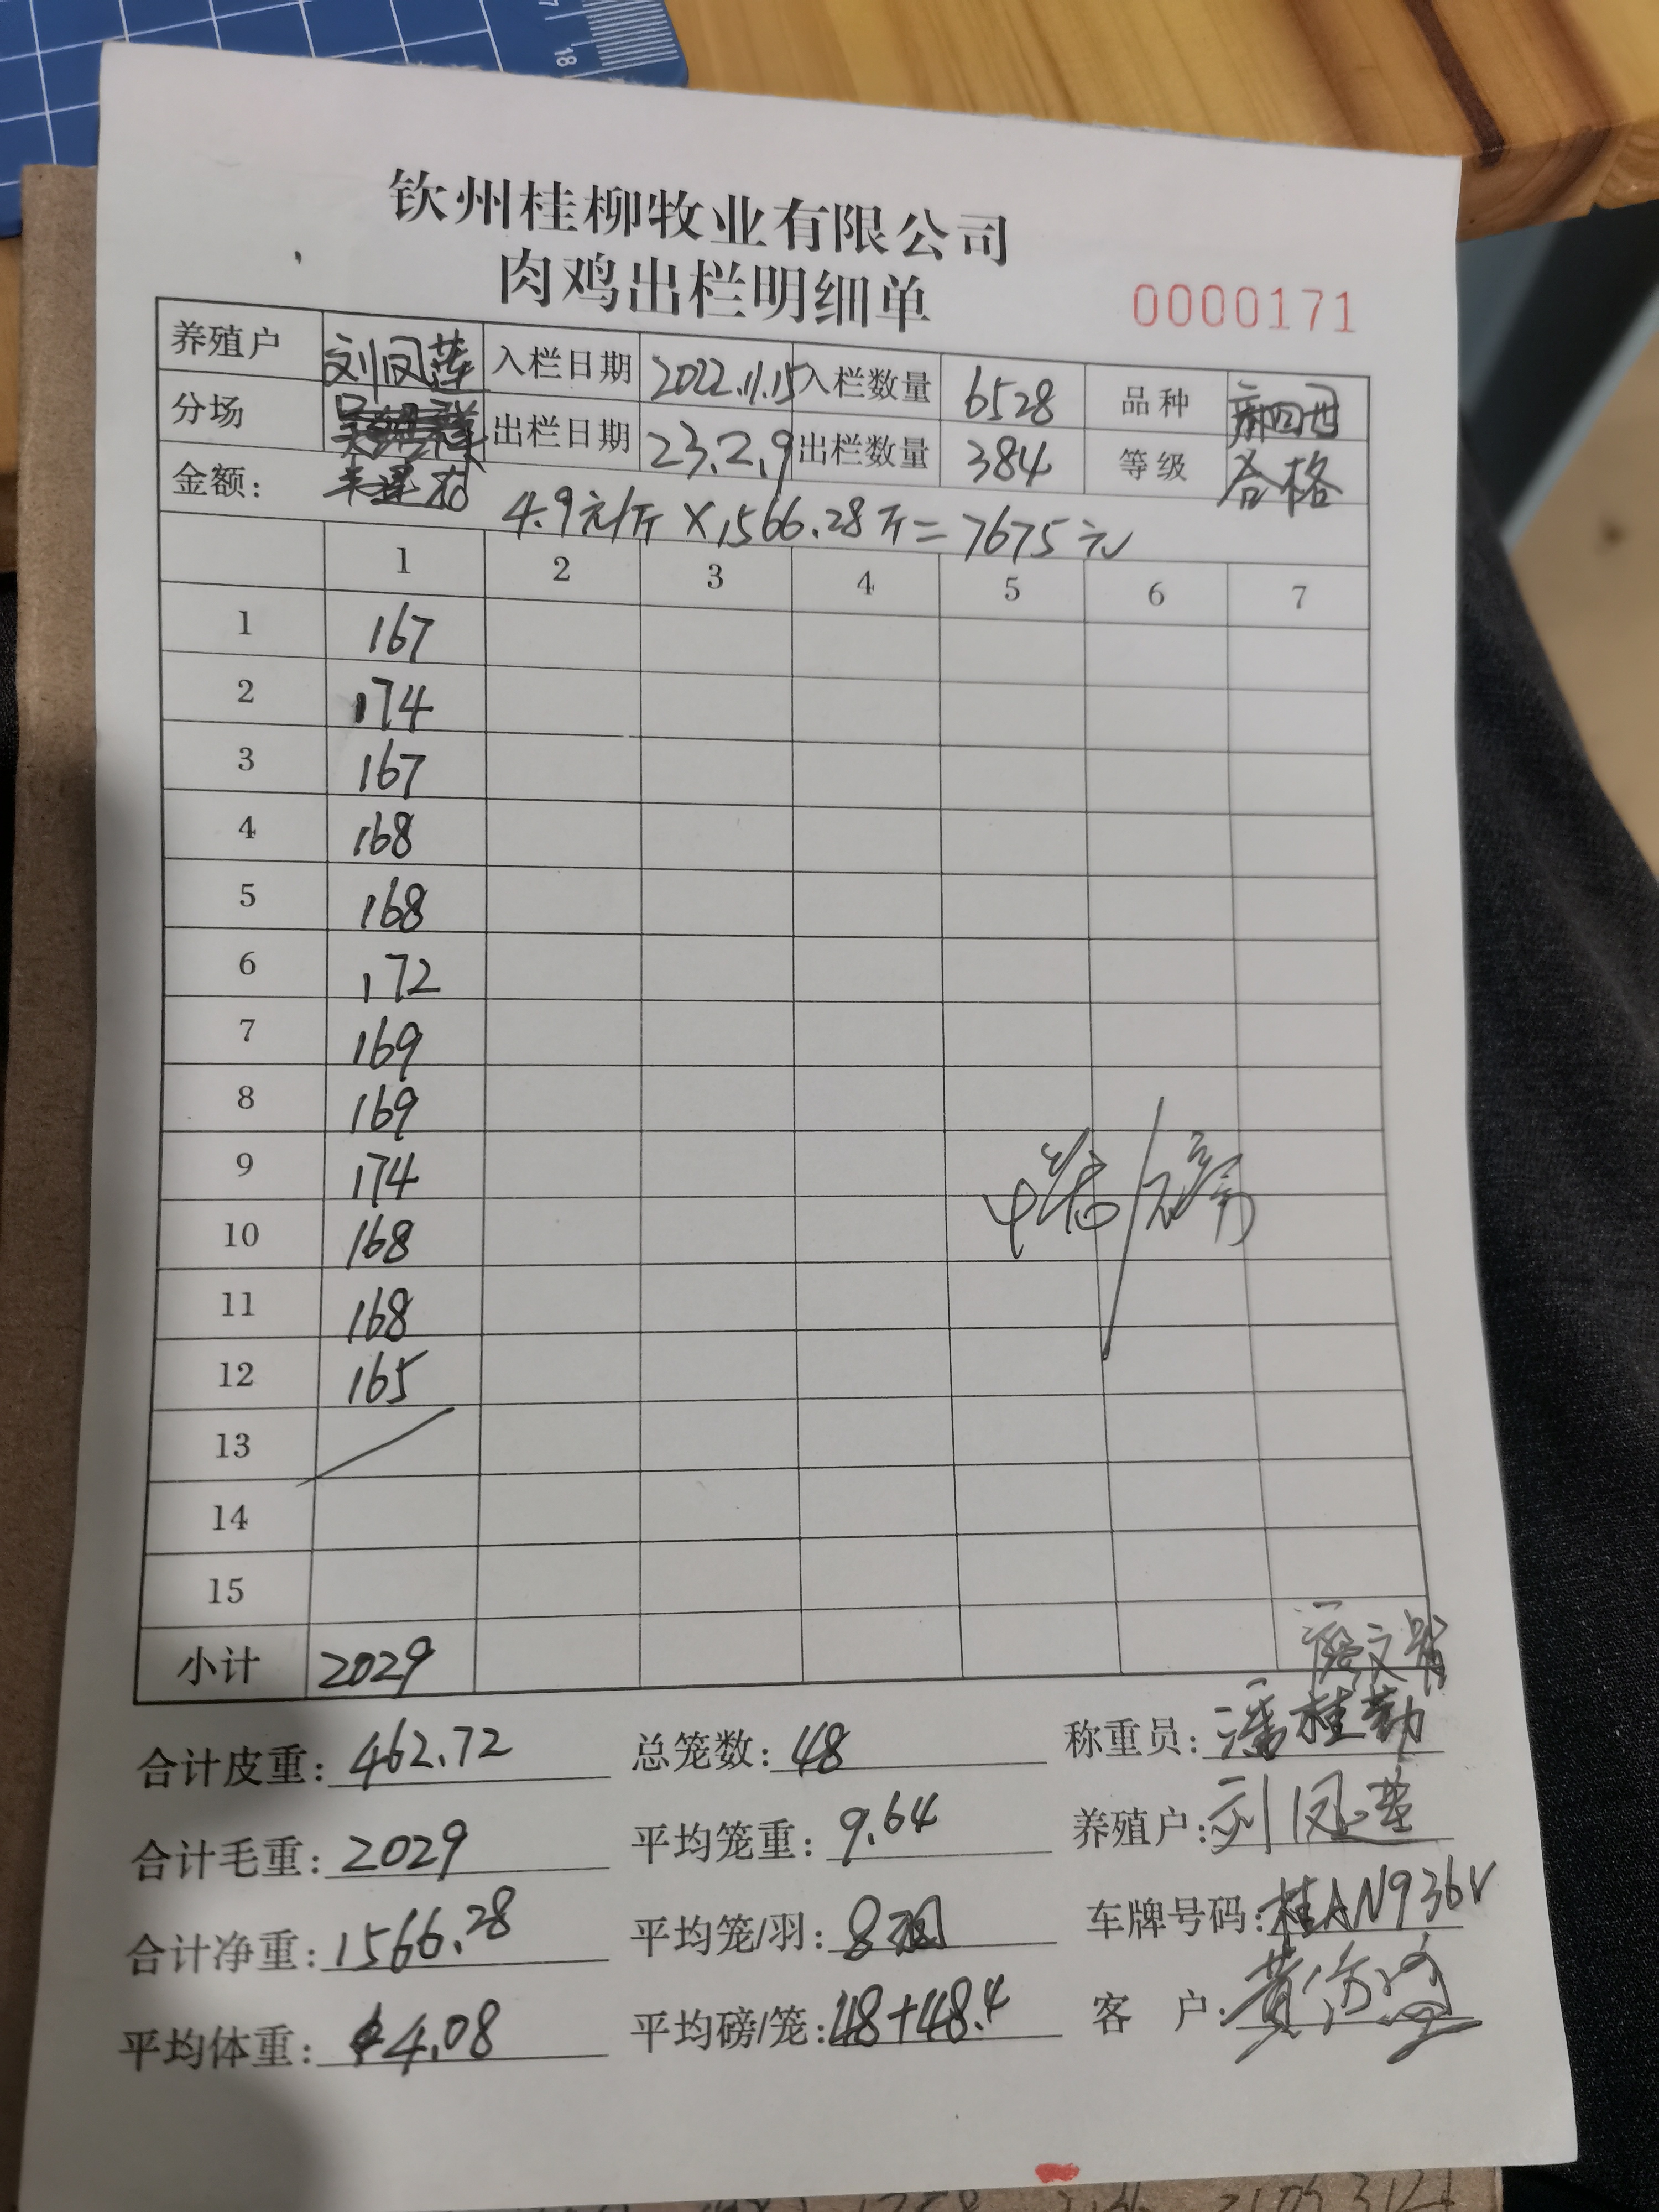 18
钦州桂柳牧业有限公司
肉鸡出栏明细单
0000171
养殖户 刘凤莲 入栏日期 2022.11.15 入栏数量 6528 品种
分场 出栏日期 23.2.9 出栏数量 384 等级 合格
金额: 4.9元/斤 X 1566.28斤=7675元
1 2 3 4 5 6 7
1 167
2 174
3 167
4 168
5 168
6 172
7 169
8 169
9 174
10 168
11 168
12 165
13
14
15
小计 2029
合计皮重: 462.72 总笼数: 48 称重员: 潘桂勤
合计毛重: 2029 平均笼重: 9.64 养殖户: 刘凤莲
合计净重: 1566.28 平均笼/羽: 8羽 车牌号码: 桂AN936V
平均体重: 4.08 平均磅/笼: 48+48.4 客 户: